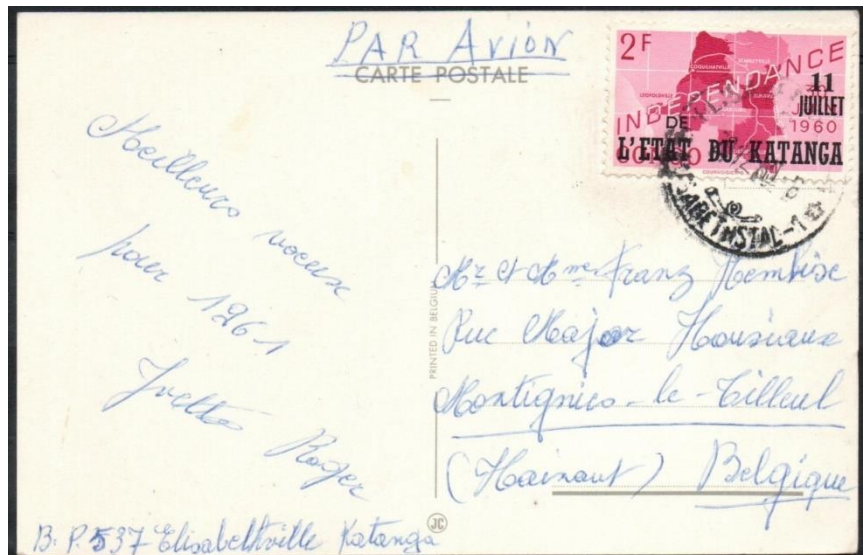 PAR AVION
CARTE POSTALE
2F
11
JUILLET
1960
INDEPENDANCE
DE
L'ETAT DU KATANGA
CONGO
Meilleurs voeux
pour 1961
Yvette Roger
B. P. 537 Elisabethville Katanga
PRINTED IN BELGIUM
JC
Mr et Mme Franz
Rue Major Housiaux
Montignies-le-Tilleul
(Hainaut) Belgique